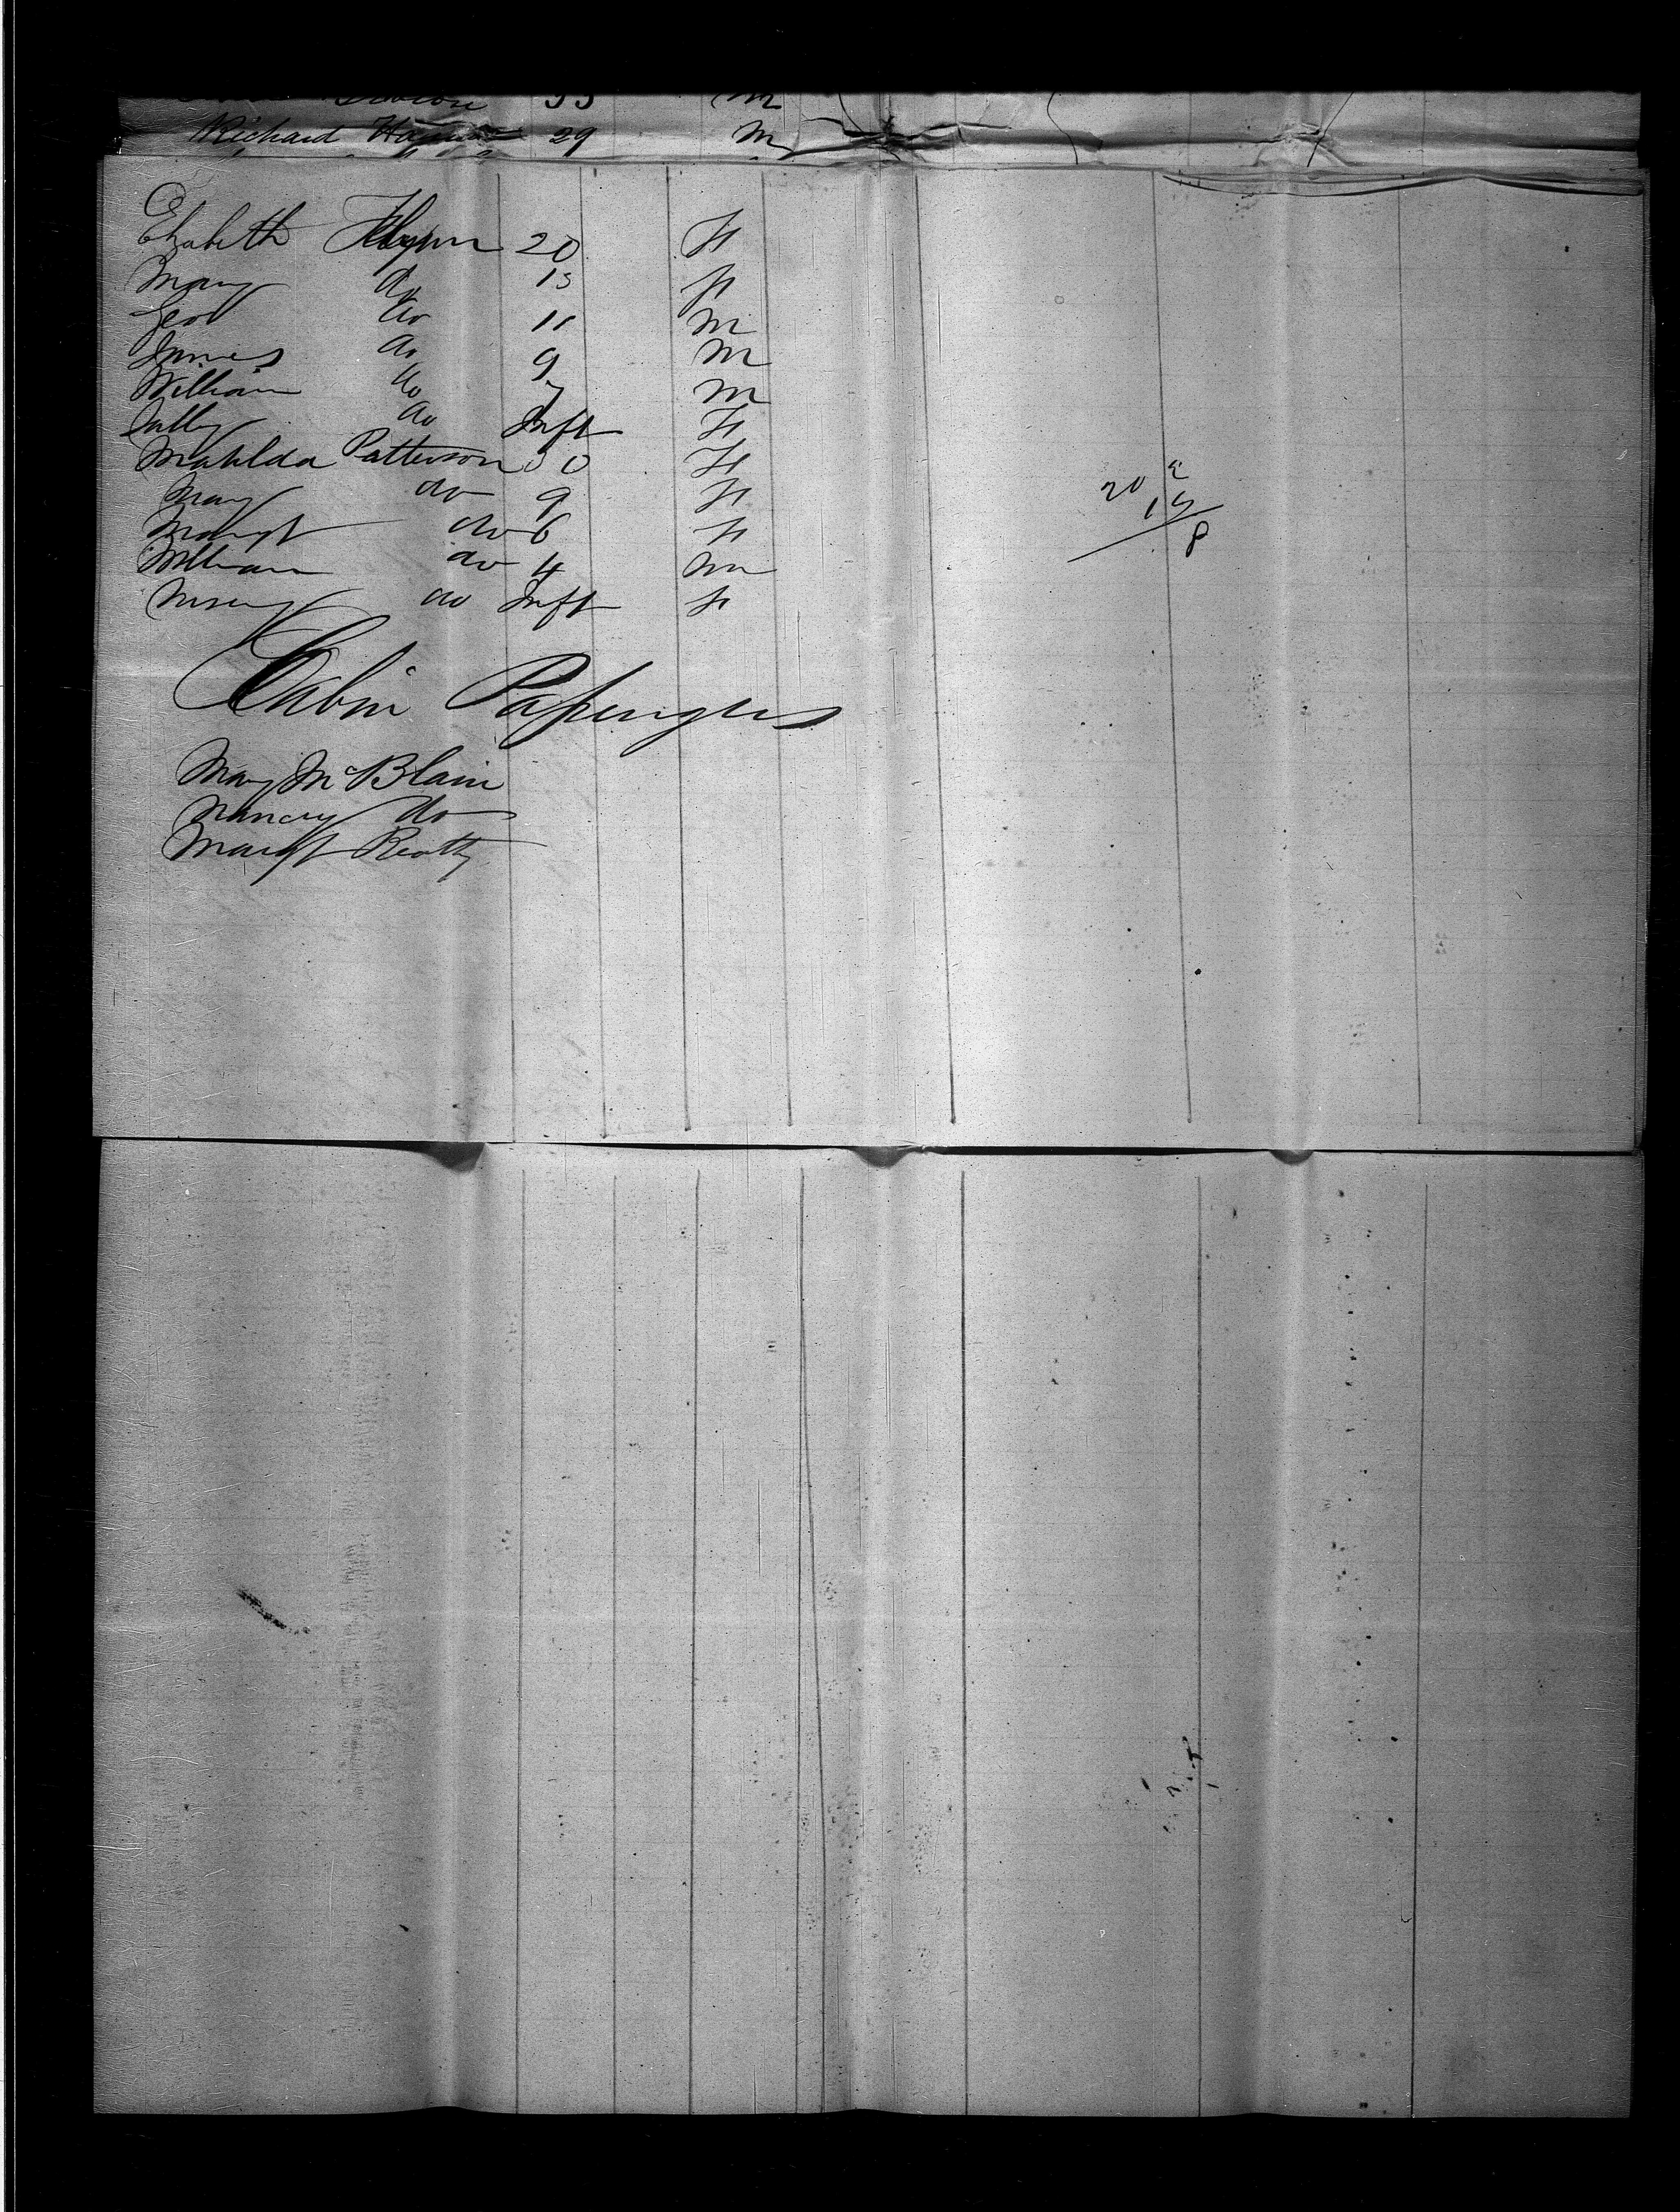 33 M
Richard 29 M
Elizabeth Flynn 20 F
Mary do 13 F
Geo do 11 M
James do 9 M
William do 7 M
Sally do Inft F
Matilda Patterson 30 F
Mary do 9 F
Margt do 6 F
William do 4 M
do Inft F
Cabin Passengers
Mary McBlain
Nancy do
Margt Beatty
20
8